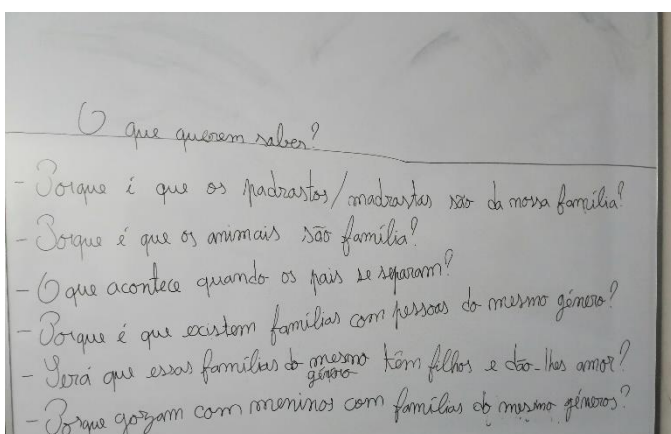 O que querem saber?
- Porque é que os padrastos/madrastas são da nossa família?
- Porque é que os animais são família?
- O que acontece quando os pais se separam?
- Porque é que existem famílias com pessoas do mesmo género?
- Será que essas famílias do mesmo género têm filhos e dão-lhes amor?
- Porque gozam com meninos com famílias do mesmo géneros?